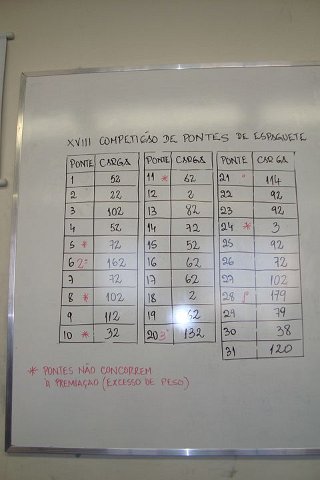 XVIII COMPETIÇÃO DE PONTES DE ESPAGUETE
PONTE CARGA PONTE CARGA PONTE CARGA
1 52 11 * 62 21 114
2 22 12 2 22 92
3 102 13 82 23 92
4 52 14 72 24 * 3
5 * 72 15 52 25 92
6 2º 162 16 62 26 72
7 72 17 62 27 102
8 * 102 18 2 28 1º 179
9 112 19 52 29 79
10 * 32 20 3º 132 30 38
31 120
* PONTES NÃO CONCORREM
À PREMIAÇÃO (EXCESSO DE PESO)